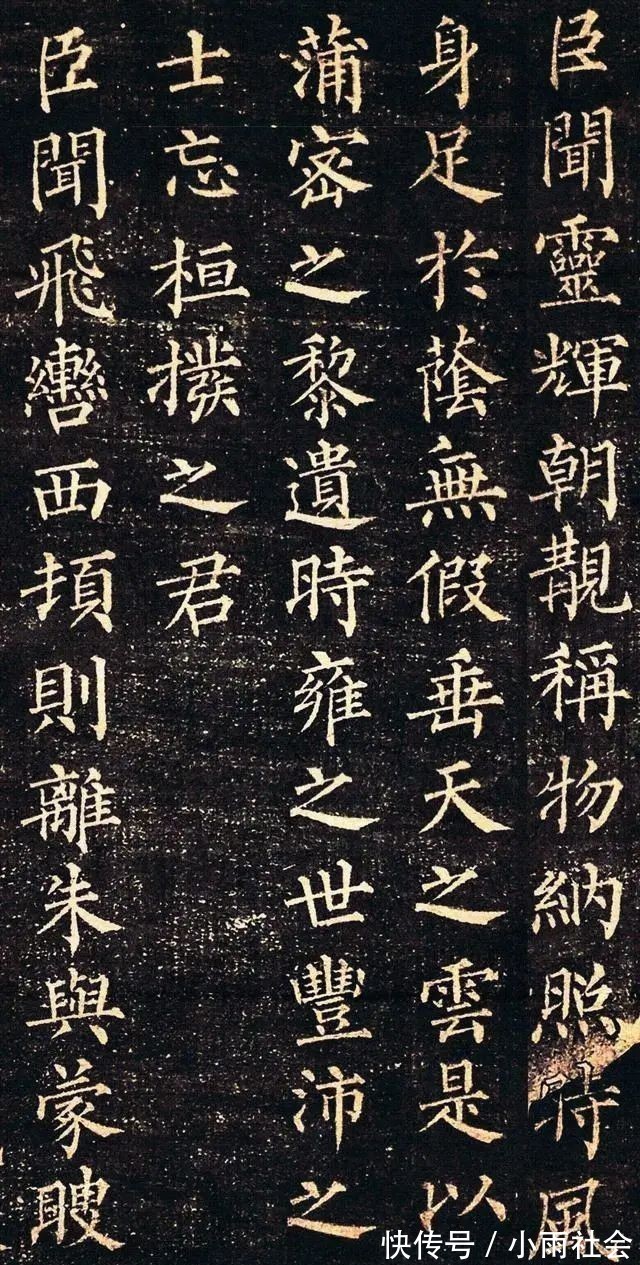 臣聞靈輝朝覯稱物納照時風
身足於蔭無假垂天之雲是以
蒲密之黎遺時雍之世豐沛之
士忘桓撥之君
臣聞飛轡西頓則離朱與蒙瞍
快传号 / 小雨社会